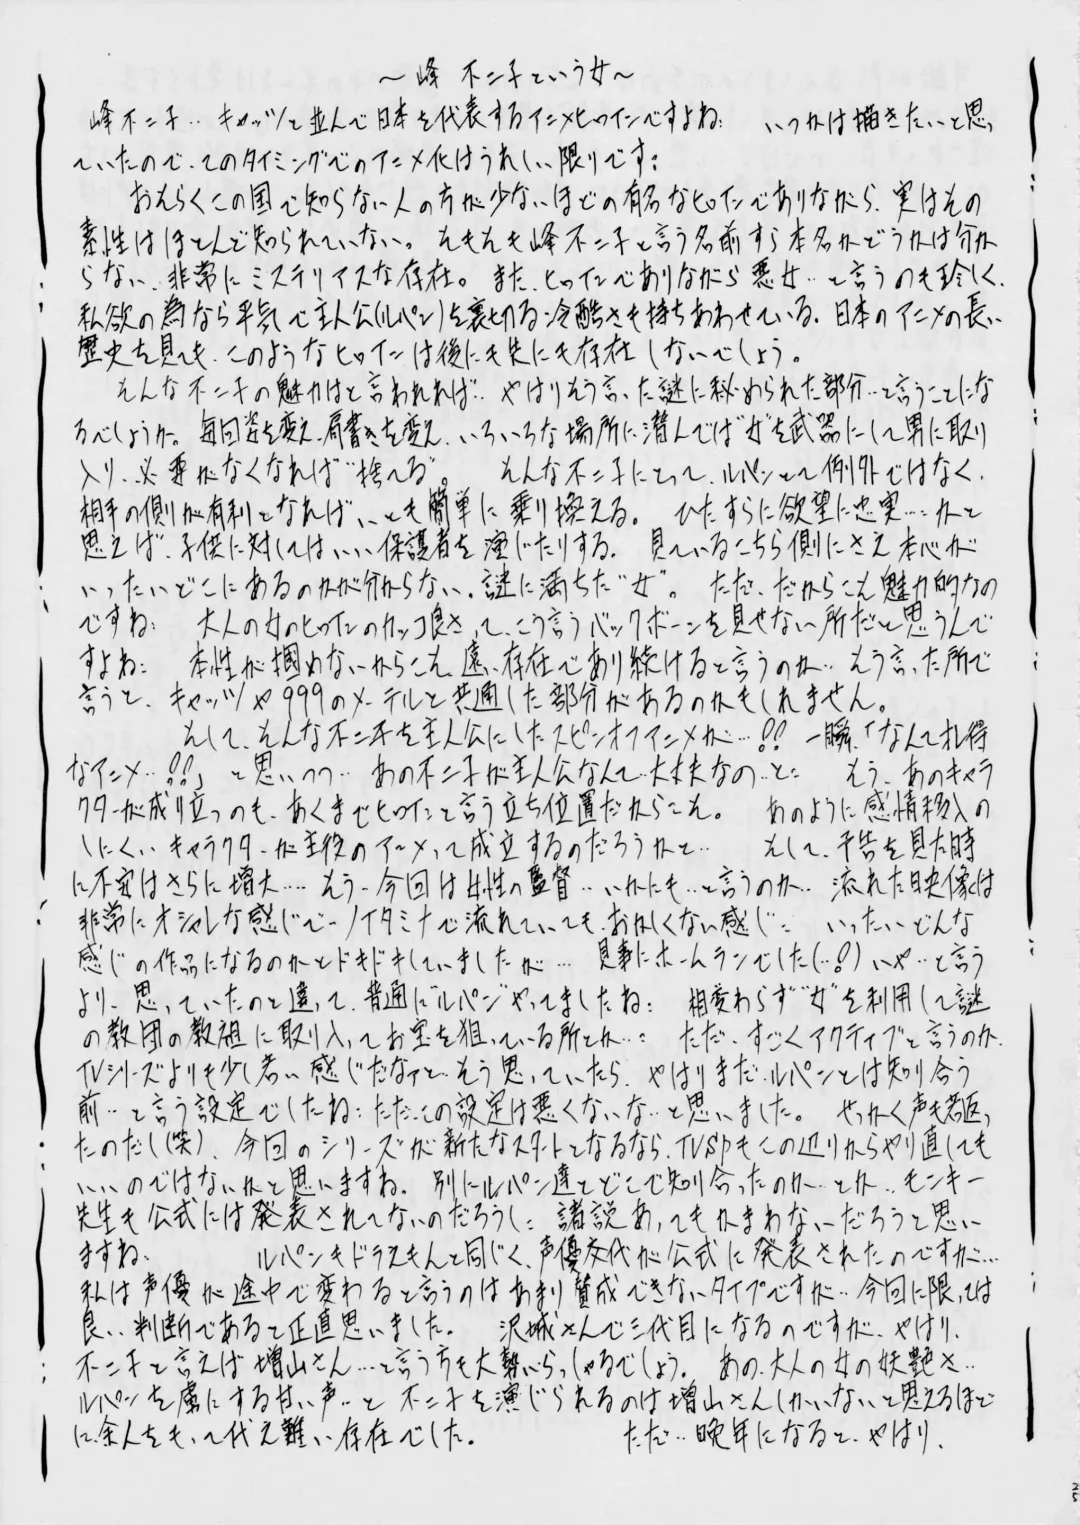 ～峰 不二子という女～
峰不二子‥キャッツと並んで日本を代表するアニメヒロインですよね： いつかは描きたいと思っ
ていたので、このタイミングでのアニメ化はうれしい限りです：
おそらくこの国で知らない人の方が少ないほどの有名なヒロインでありながら、実はその
素性はほとんど知られていない。そもそも峰不二子と言う名前すら本名かどうかは分か
らない、非常にミステリアスな存在。また、ヒロインでありながら悪女‥と言うのも珍しく、
私欲の為なら平気で主人公(ルパン)を裏切る冷酷さも持ちあわせている。日本のアニメの長い
歴史を見ても、このようなヒロインは後にも先にも存在しないでしょう。
そんな不二子の魅力はと言われれば‥やはりそう言った謎に秘められた部分‥と言うことにな
るでしょうか。毎回姿を変え、肩書きを変え、いろいろな場所に潜んでは“女”を武器にして男に取り
入り、必要がなくなれば“捨てる”。 そんな不二子にとって、ルパンとて例外ではなく、
相手の側が有利となれば、いとも簡単に乗り換える。 ひたすらに欲望に忠実…かと
思えば、子供に対してはいい保護者を演じたりする。 見ているこちら側にさえ本心が
いったいどこにあるのかが分からない、謎に満ちた“女”。 ただ、だからこそ魅力的なの
ですね： 大人の女のヒロインのカッコ良さって、こう言うバックボーンを見せない所だと思うんで
すよね： 本性が掴めないからこそ、遠い存在であり続けると言うのか‥そう言った所で
言うと、キャッツや999のメーテルと共通した部分があるのかもしれません。
そして、そんな不二子を主人公にしたスピンオフアニメが…!? 一瞬、「なんてオレ得
なアニメ‥!?」と思いつつ‥あの不二子が主人公なんて‥大丈夫なの‥と： そう、あのキャラ
クターが成り立つのも、あくまでヒロインと言う立ち位置だからこそ。 あのように感情移入の
しにくいキャラクターが主役のアニメって成立するのだろうかと‥ そして、予告を見た時
に不安はさらに増大…そう、今回は女性の監督‥いかにも‥と言うのか‥流れた映像は
非常にオシャレな感じで…ノイタミナで流れていてもおかしくない感じ： いったいどんな
感じの作品になるのかとドキドキしていましたが… 見事にホームランでした(…!?)いや‥と言う
より、思っていたのと違って、普通に“ルパン”やってましたね： 相変わらず“女”を利用して謎
の教団の教祖に取り入ってお宝を狙っている所とか…： ただ、すごくアクティブと言うのか、
TVシリーズよりも少し若い感じだなァと‥そう思っていたら、やはりまだルパンとは知り合う
前‥と言う設定でしたね：ただ、この設定は悪くないな‥と思いました。 せっかく声も若返っ
たのだし(笑)、今回のシリーズが新たなスタートとなるなら、TVSPもこの辺りからやり直しても
いいのではないかと思いますね。別にルパン達とどこで知り合ったのか‥とか‥モンキー
先生も公式には発表されてないのだろうし：諸説あってもかまわないーだろうと思い
ますね： ルパンもドラえもんと同じく、声優交代が公式に発表されたのですが…
私は声優が途中で変わると言うのはあまり賛成できないタイプですが‥今回に限っては
良い判断であると正直思いました。 沢城さんで三代目になるのですが、やはり、
不二子と言えば増山さん…と言う方も大勢いらっしゃるでしょう。あの、大人の女の妖艶さ‥
ルパンを虜にする甘い声‥と不二子を演じられるのは増山さんしかいないと思えるほど
に、余人をもって代え難い存在でした。 ただ‥晩年になると、やはり、